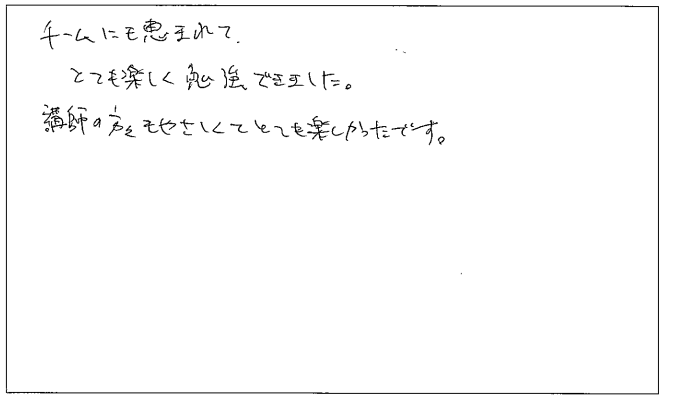 チームにも恵まれて、
とても楽しく勉強できました。
講師の方々もやさしくてとても楽しかったです。